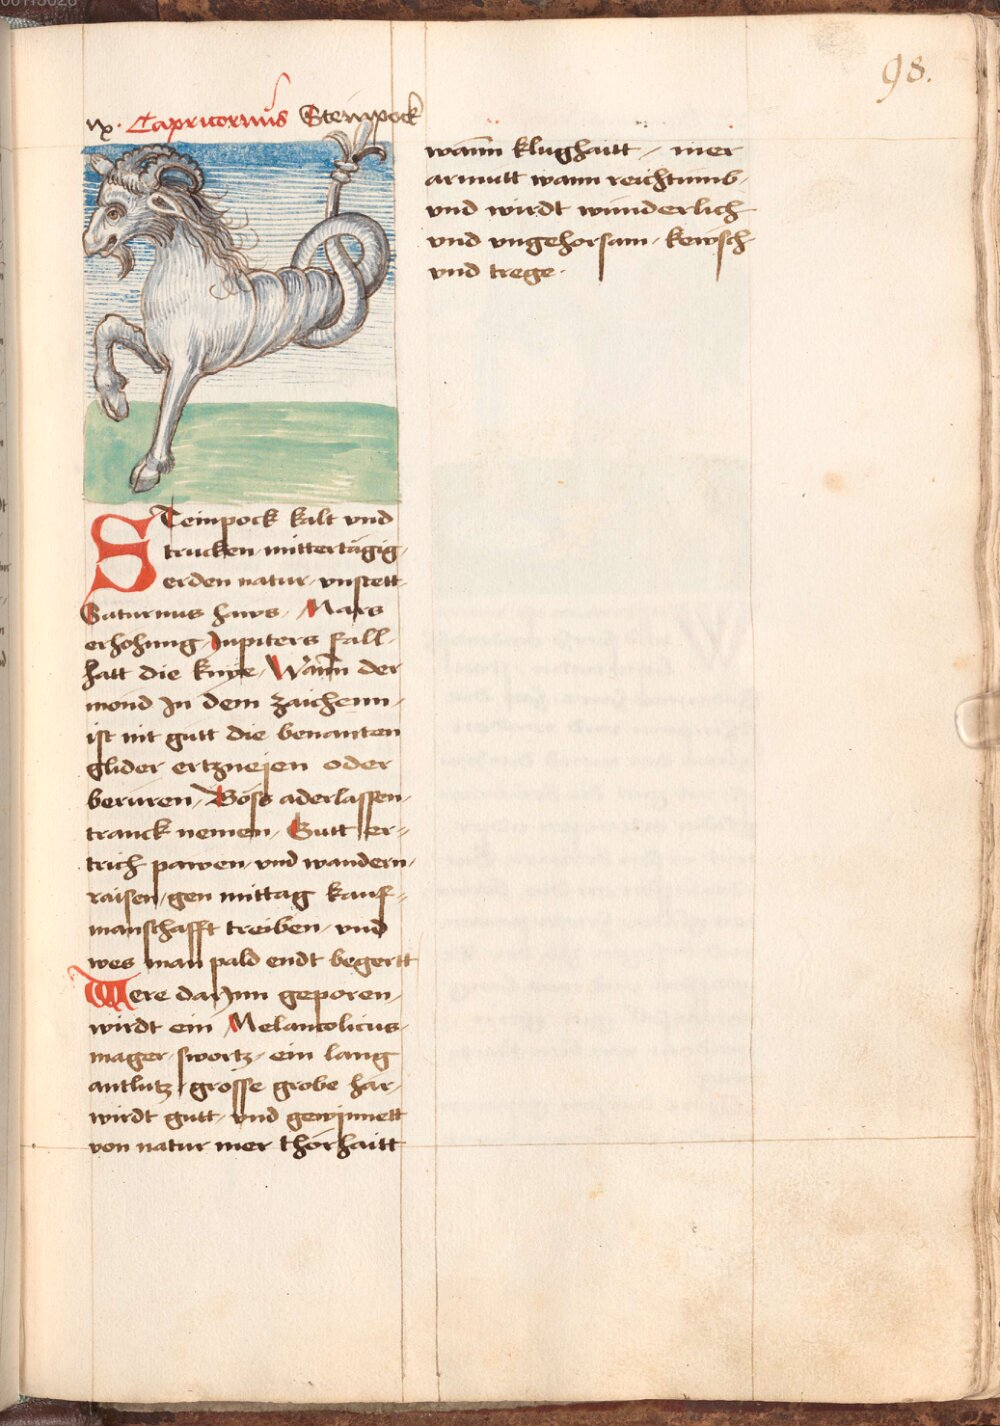 98.
ix. Capricornus Steinpock
STeinpock kalt vnd
trucken, mittertägig,
erden natur, vnstett,
Saturnus haws, Mars
erhohung, Jupiters fall,
hatt die knye, Wann der
mond Jn dem zaichenn,
ist nit gutt die benanten
glider ertzneien oder
beruren, Böss aderlassen,
tranck nemen, Gutt er-
trich pawen, vnd wandern,
raisen, gen mittag kauf-
manschafft treiben, vnd
wes man pald endt begertt
Were darJnn geporen,
wirdt ein Melancolicus,
mager, swortz, ein lang
antlutz, grosse grobe har,
wirdt gutt, vnd gewinnett
von natur mer thorhaitt
wann klughaitt, mer
armutt wann reichtumb,
vnd wirdt wunderlich
vnd vngehorsam, kewsch
vnd trege.